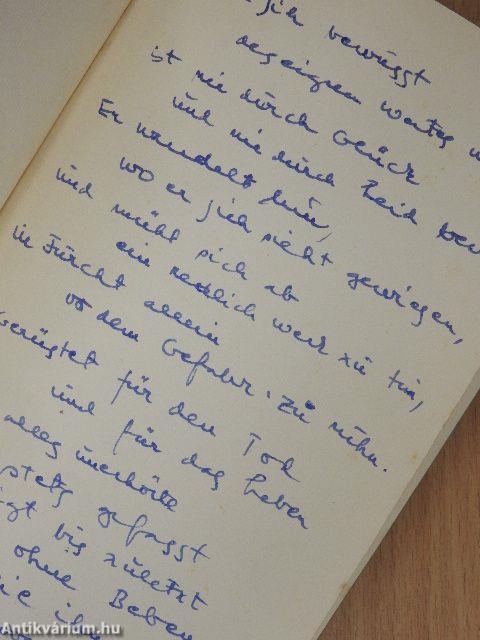 sich bewusst
des eignen wertes
ist nie durch Glück
und nie durch Leid
Er wandelt hin,
wo er sich sieht gewiesen,
und müht sich ab
ein redlich werk zu tun,
in Furcht allein
vor dem Gefahr. Zu ruhn.
Gerüstet für den Tod
und für das Leben
alles unerhörte
stets gefasst
bis zuletzt
ohne Beben
Antikvárium.hu